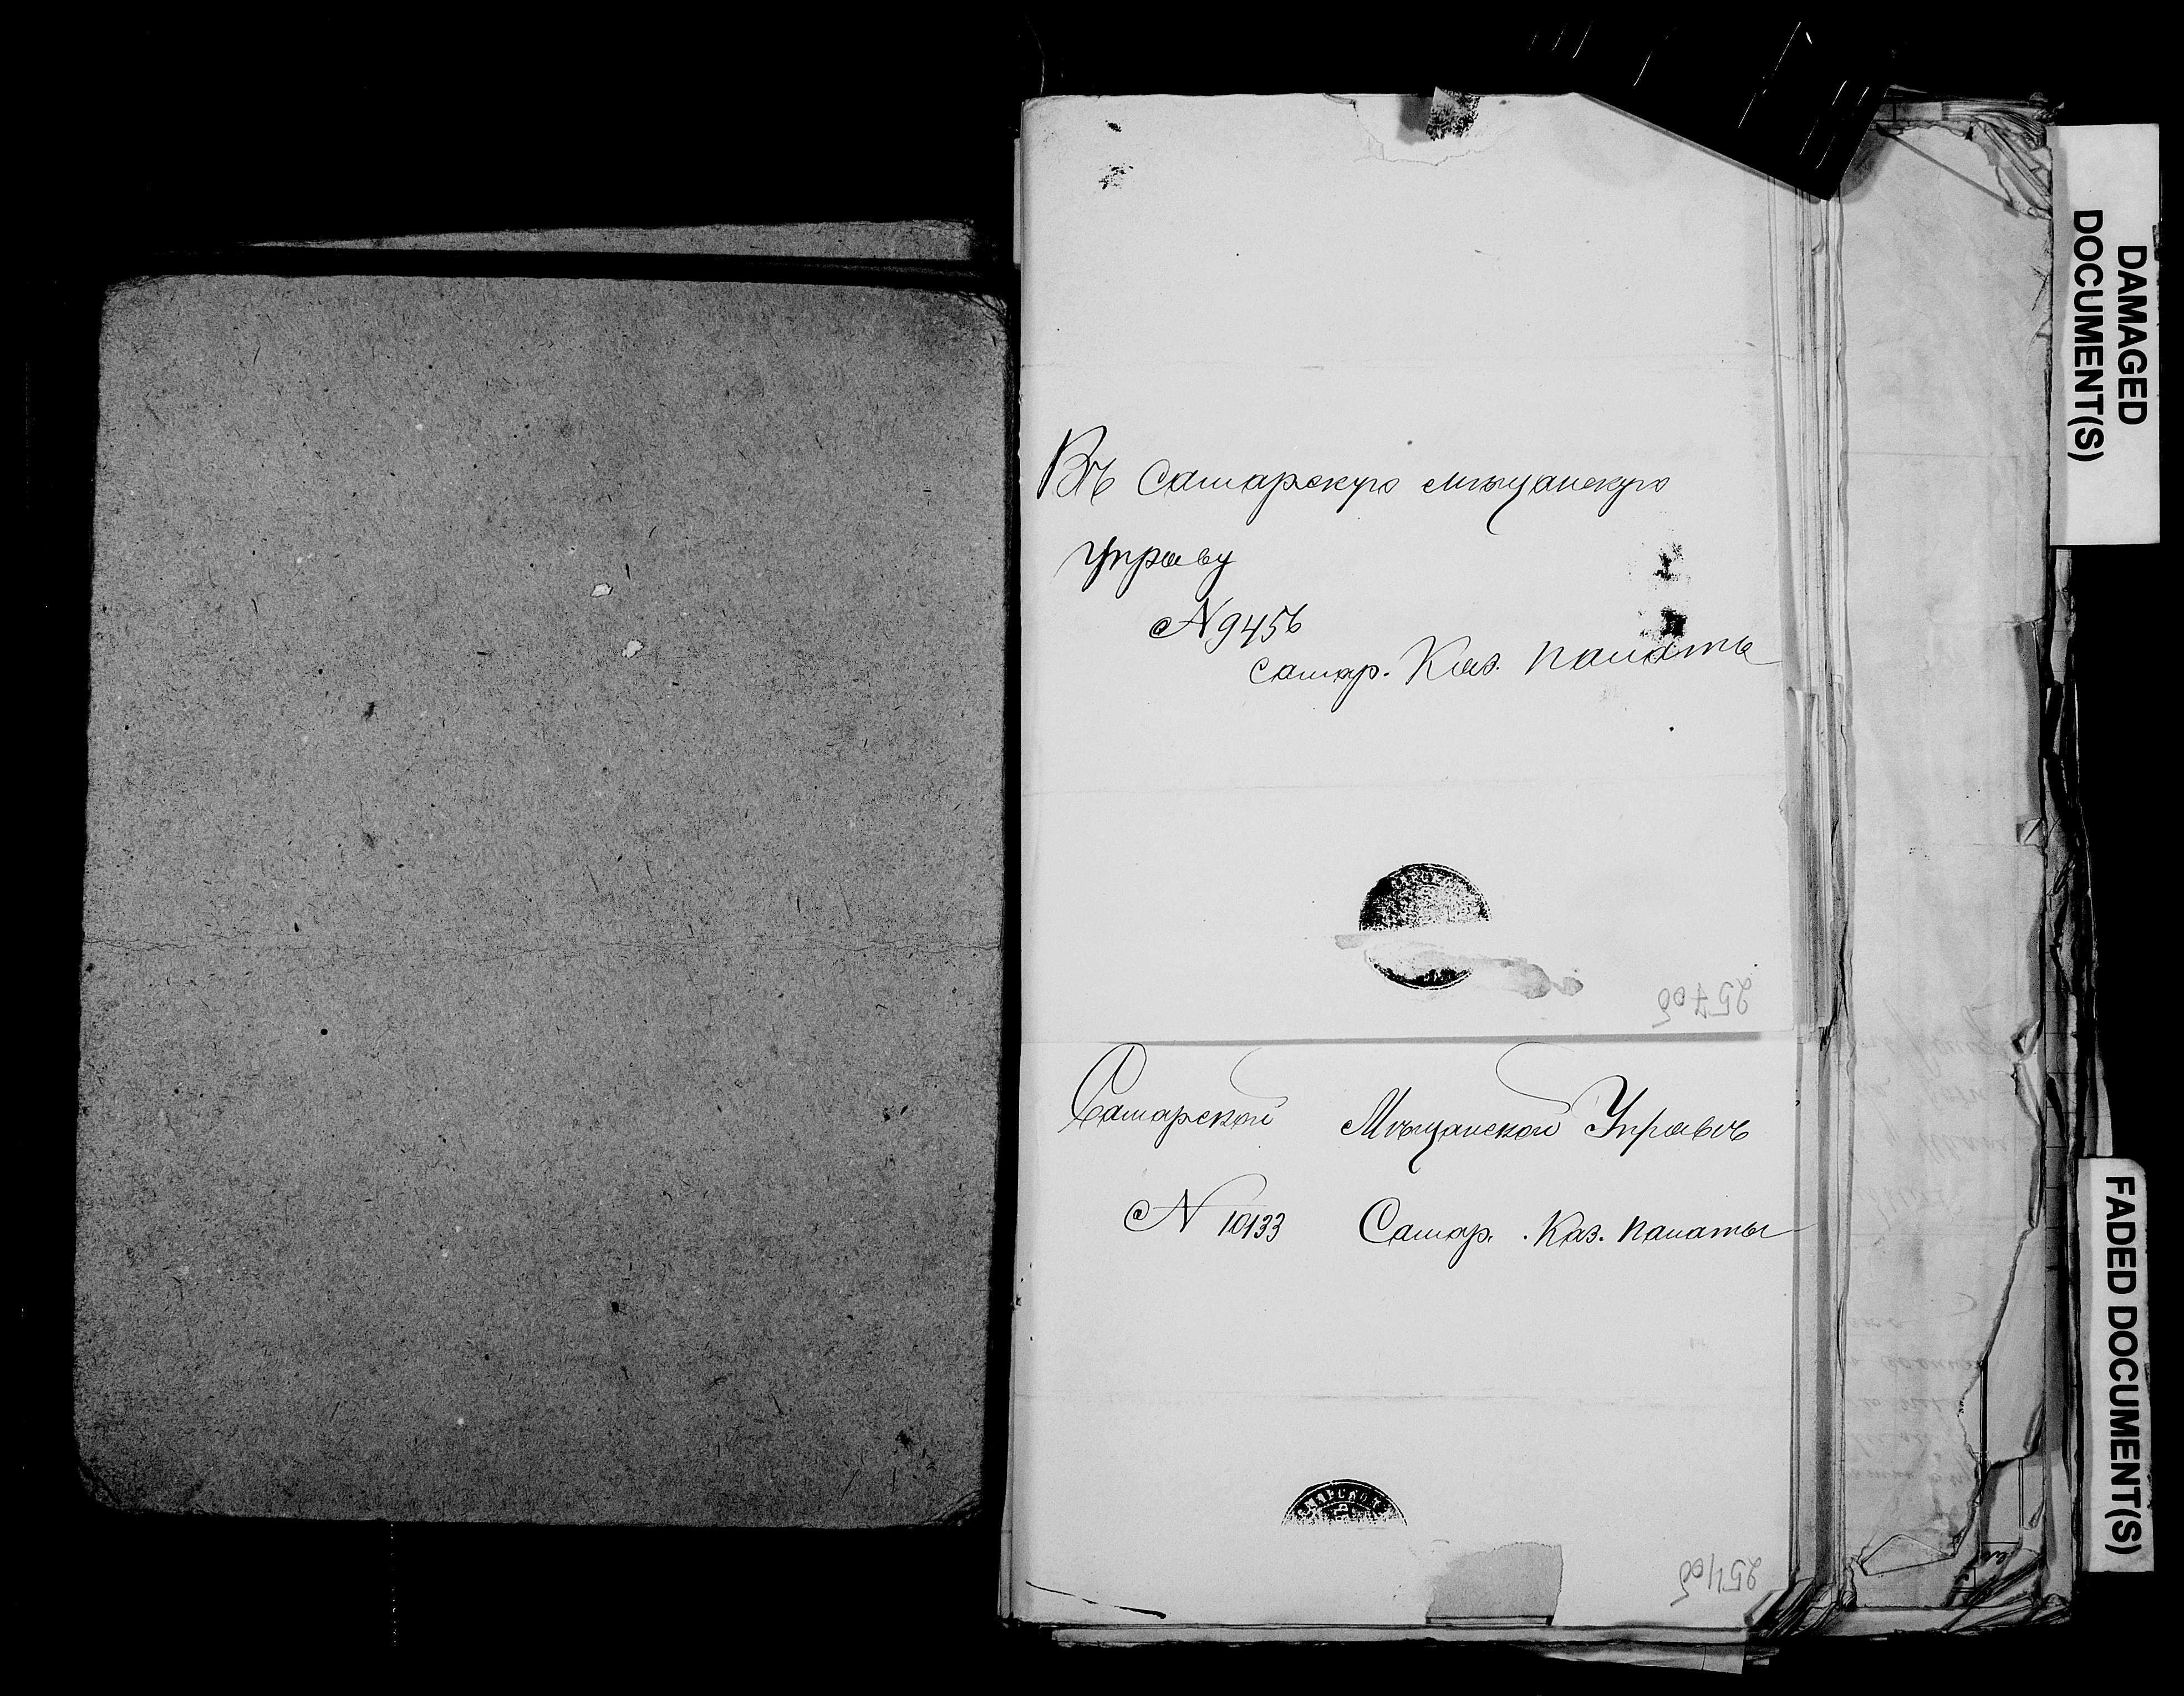 Въ Самарскую мѣщанскую
управу
№ 9456
Самар. Каз. Палаты
257об
Самарской Мѣщанской Управѣ
№ 10133 Самар. Каз. Палаты
251об
DAMAGED
DOCUMENT(S)
FADED DOCUMENT(S)